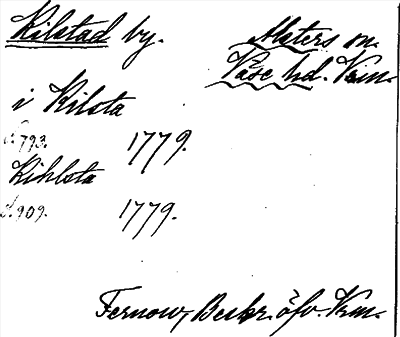 Kilstad by. Alsters sn.
Väse hd. Vrm.
i Kilsta
s. 793. 1779.
Kihlsta
s. 909. 1779.
Fernow, Beskr. öfv. Vrm.